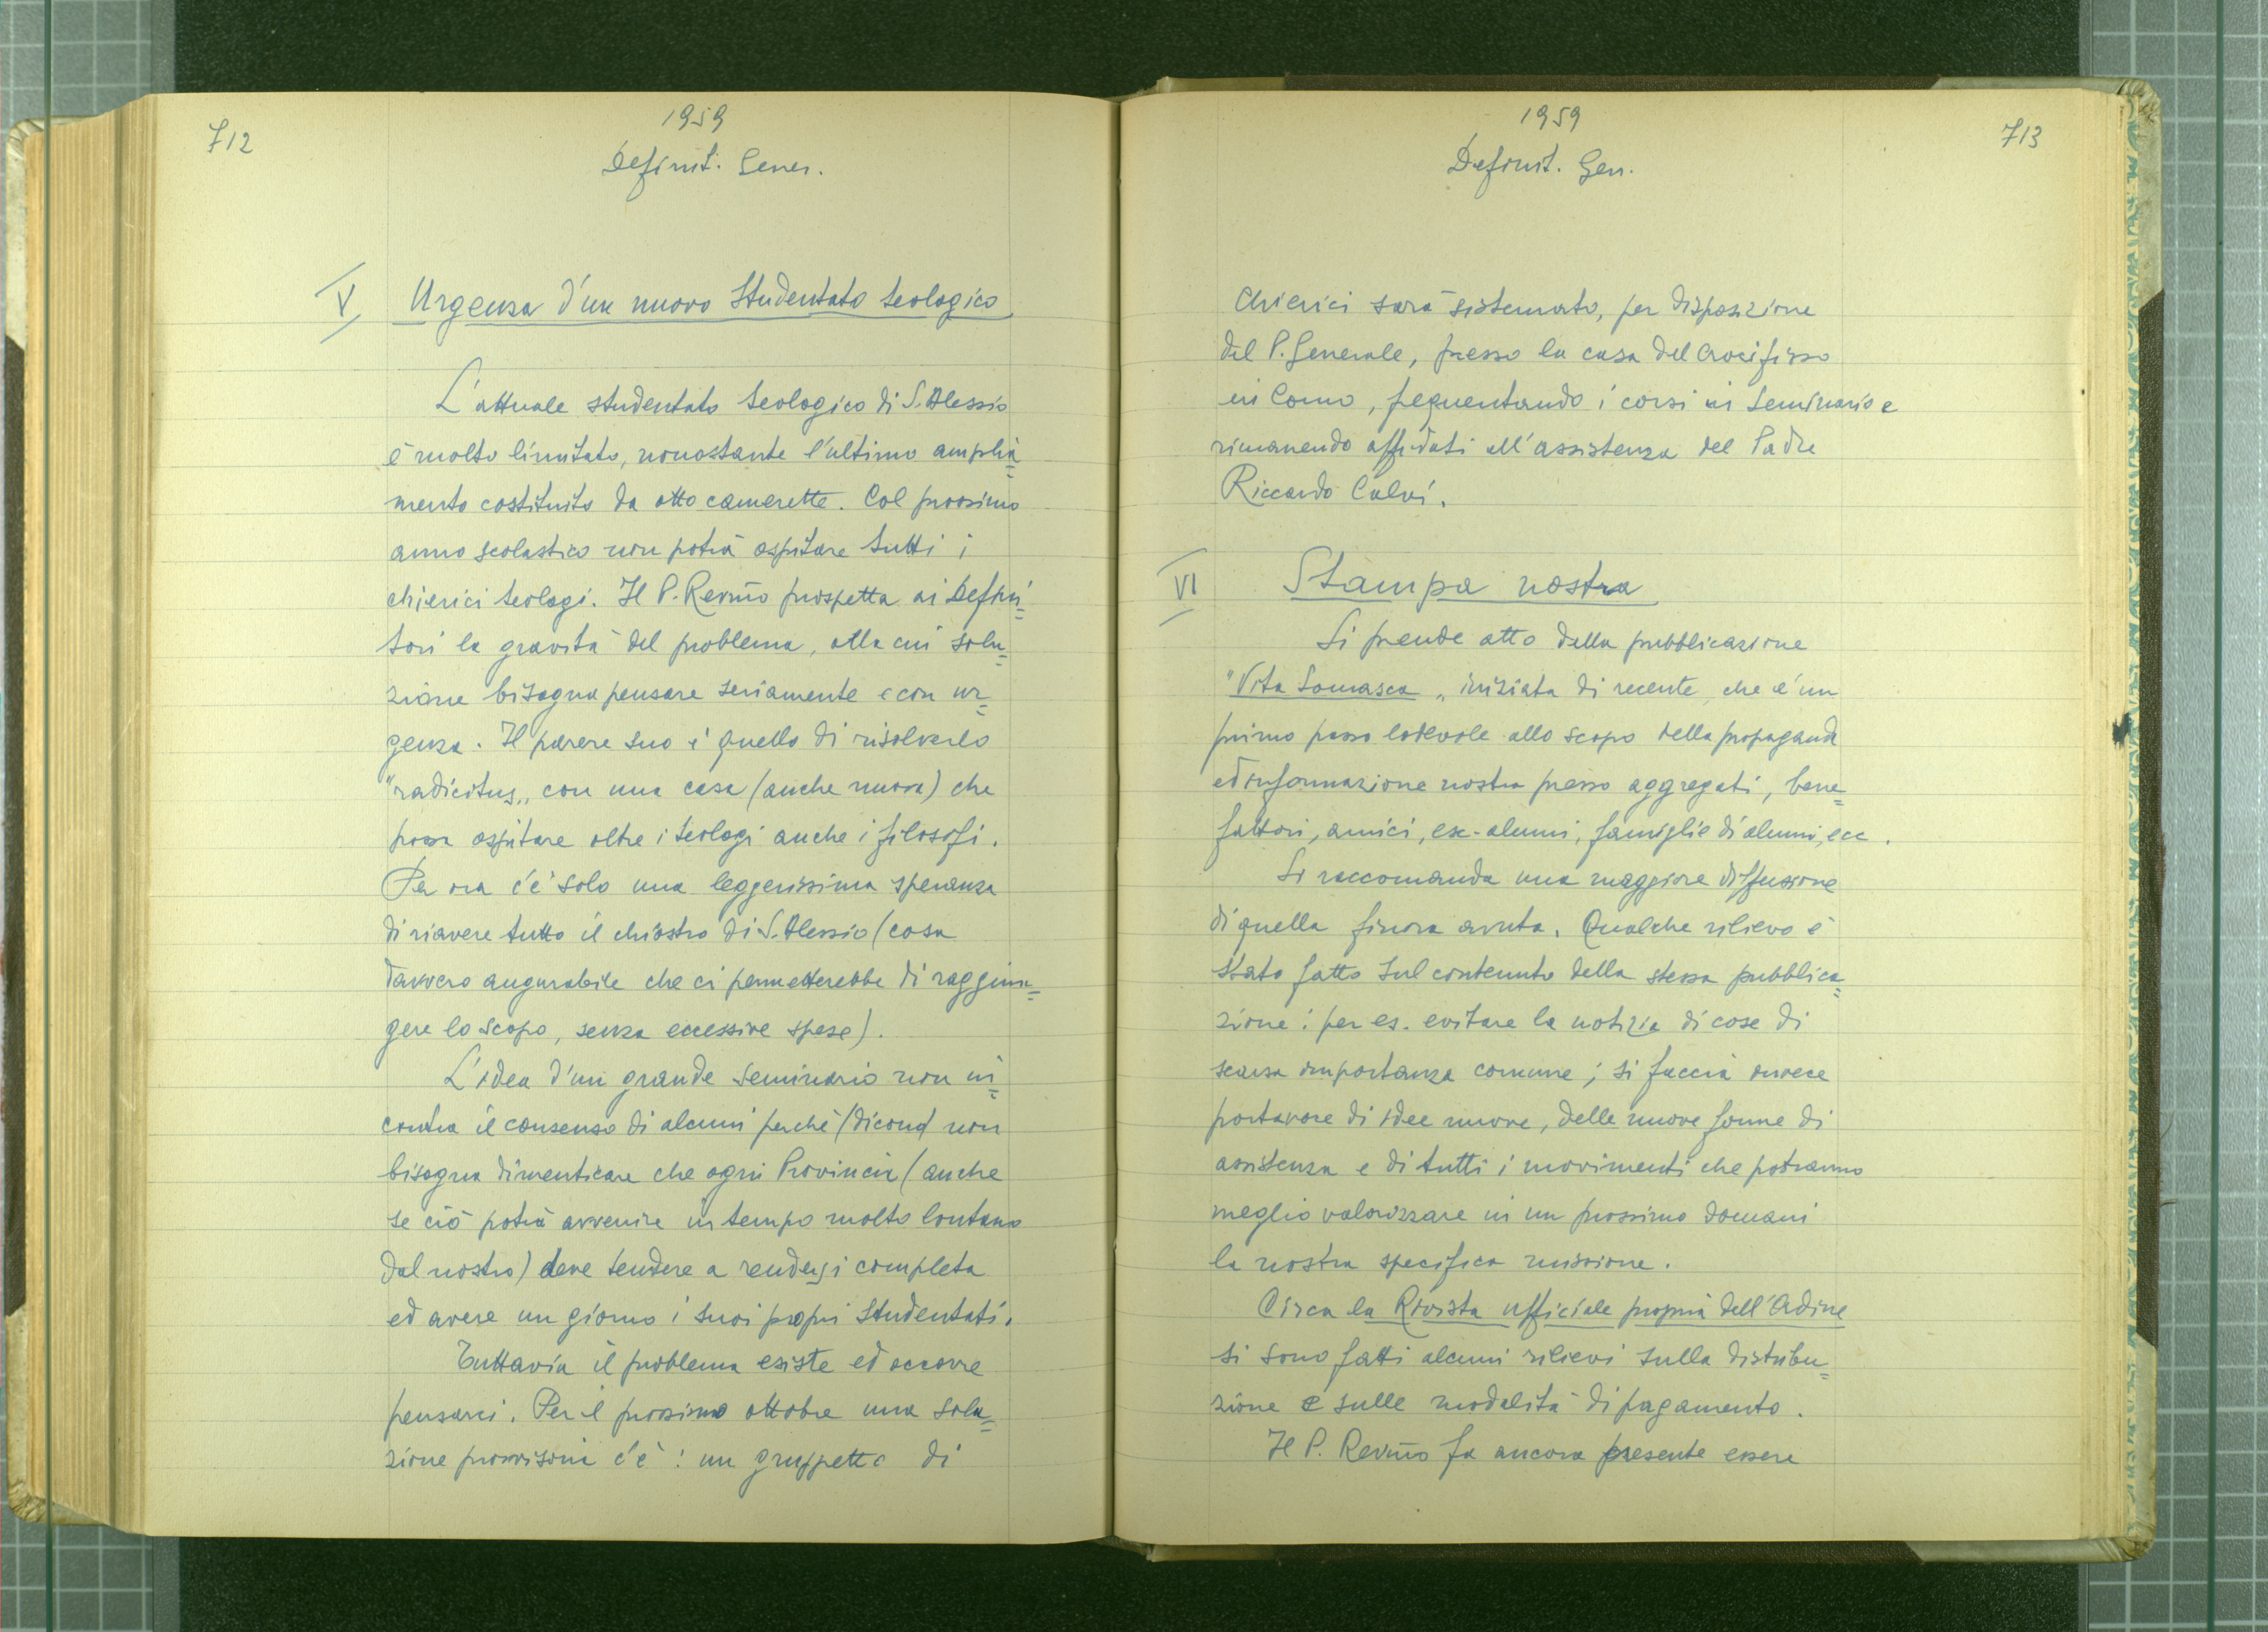 712
1959
Definit. Gener.
V Urgenza d'un nuovo studentato teologico
L'attuale studentato teologico di S. Alessio
è molto limitato, nonostante l'ultimo amplia=
mento costituito da otto camerette. Col prossimo
anno scolastico non potrà ospitare tutti i
chierici teologi. Il P. Rev.mo prospetta ai Defini=
tori la gravità del problema, alla cui solu=
zione bisogna pensare seriamente e con ur=
genza. Il parere suo è quello di risolverlo
"radicitus„ con una casa (anche nuova) che
possa ospitare oltre i teologi anche i filosofi.
Per ora c'è solo una leggerissima speranza
di riavere tutto il chiostro di S. Alessio (cosa
davvero augurabile che ci permetterebbe di raggiun=
gere lo scopo, senza eccessive spese).
L'idea d'un grande seminario non in=
contra il consenso di alcuni perchè (dicono) non
bisogna dimenticare che ogni Provincia (anche
se ciò potrà avvenire in tempo molto lontano
dal nostro) deve tendere a rendersi completa
ed avere un giorno i suoi propri studentati.
Tuttavia il problema esiste ed occorre
pensarci. Per il prossimo ottobre una solu=
zione provvisoria c'è: un gruppetto di
713
1959
Definit. Gen.
chierici sarà sistemato, per disposizione
del P. Generale, presso la casa del Crocifisso
in Como, frequentando i corsi in Seminario e
rimanendo affidati all'assistenza del Padre
Riccardo Calvi.
VI Stampa nostra
Si prende atto della pubblicazione
"Vita Somasca„ iniziata di recente, che è un
primo passo lodevole allo scopo della propaganda
ed informazione nostra presso aggregati, bene=
fattori, amici, ex-alunni, famiglie di alunni, ecc.
Si raccomanda una maggiore diffusione
di quella finora avuta. Qualche rilievo è
stato fatto sul contenuto della stessa pubblica=
zione: per es. evitare la notizia di cose di
scarsa importanza comune; si faccia invece
portavoce di idee nuove, delle nuove forme di
assistenza e di tutti i movimenti che potranno
meglio valorizzare in un prossimo domani
la nostra specifica missione.
Circa la Rivista ufficiale propria dell'Ordine
si sono fatti alcuni rilievi sulla distribu=
zione e sulle modalità di pagamento.
Il P. Rev.mo fa ancora presente essere